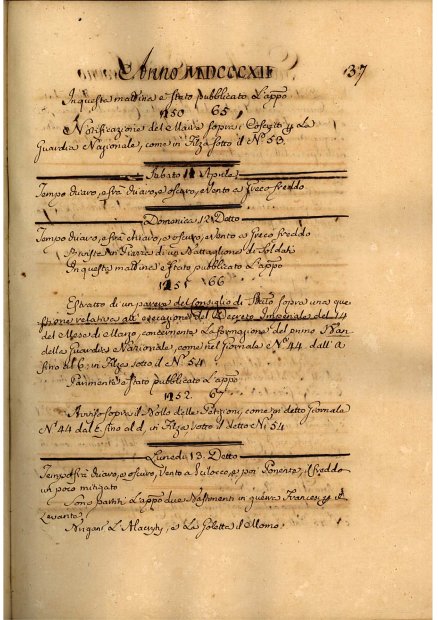 Anno MDCCCXII 37
In questa mattina è stato pubblicato L'appo
150 65
Notificazione del Maire sopra i Coscritti La
Guardia Nazionale, come in Filza sotto il Nº 53
Sabato 11 Aprile
Tempo chiaro, e frà chiaro, e oscuro, e Vento a Greco freddo
Domenica 12 Detto
Tempo chiaro, e frà chiaro, e oscuro, e Vento a Greco freddo
di un Battaglione di Soldati
In questa mattina è stato pubblicato L'appo
151 66
Estratto di un parere del Consiglio di Stato sopra una que
stione relativa all'esecuzione del Decreto Imperiale del 14
del Mese di Marzo, concernente La formazione del primo Ban
della Guardia Nazionale, come nel Giornale Nº 44 dall' a
fino al 6, in Filza sotto il Nº 54
Parimente è stato pubblicato L'appo
152 67
Avviso sopra il Nolo delle Prigioni, come in detto Giornale
Nº 44 dal fino al d, in Filza sotto il detto Nº 54
Lunedì 13 Detto
Tempo frà chiaro, e oscuro, Vento a Scirocco, e poi Ponente, il freddo
un poco mitigato
Sono partiti L'appo due Bastimenti in guerra Francesi
Levante
L' e La Goletta il Momo